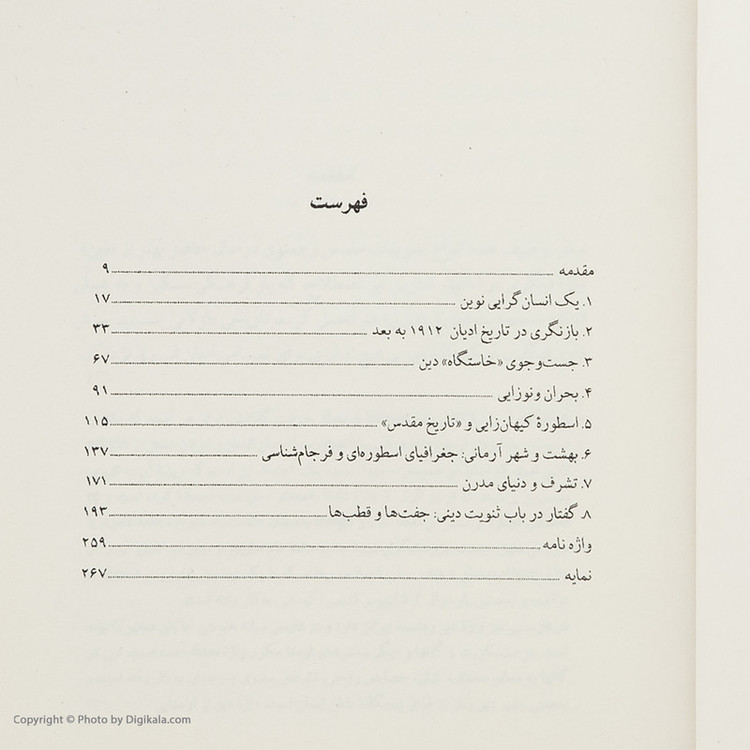 فهرست
مقدمه ..... ۹
۱. یک انسان‌گرایی نوین ..... ۱۷
۲. بازنگری در تاریخ ادیان ۱۹۱۲ به بعد ..... ۳۳
۳. جست‌وجوی «خاستگاه» دین ..... ۶۷
۴. بحران ونوزایی ..... ۹۱
۵. اسطورهٔ کیهان‌زایی و «تاریخ مقدس» ..... ۱۱۵
۶. بهشت و شهر آرمانی: جغرافیای اسطوره‌ای و فرجام‌شناسی ..... ۱۳۷
۷. تشرف و دنیای مدرن ..... ۱۷۱
۸. گفتار در باب ثنویت دینی: جفت‌ها و قطب‌ها ..... ۱۹۳
واژه نامه ..... ۲۵۹
نمایه ..... ۲۶۷
Copyright © Photo by Digikala.com